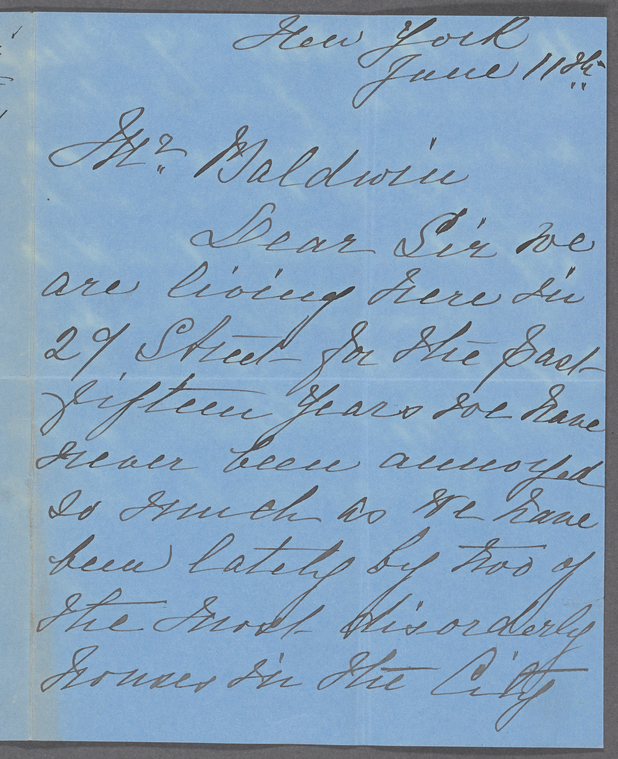 New York
June 11th
Mr Baldwin
Dear Sir we
are living here in
29 Street for the past
fifteen years we have
never been annoyed
so much as we have
been lately by two of
the most disorderly
houses in the City